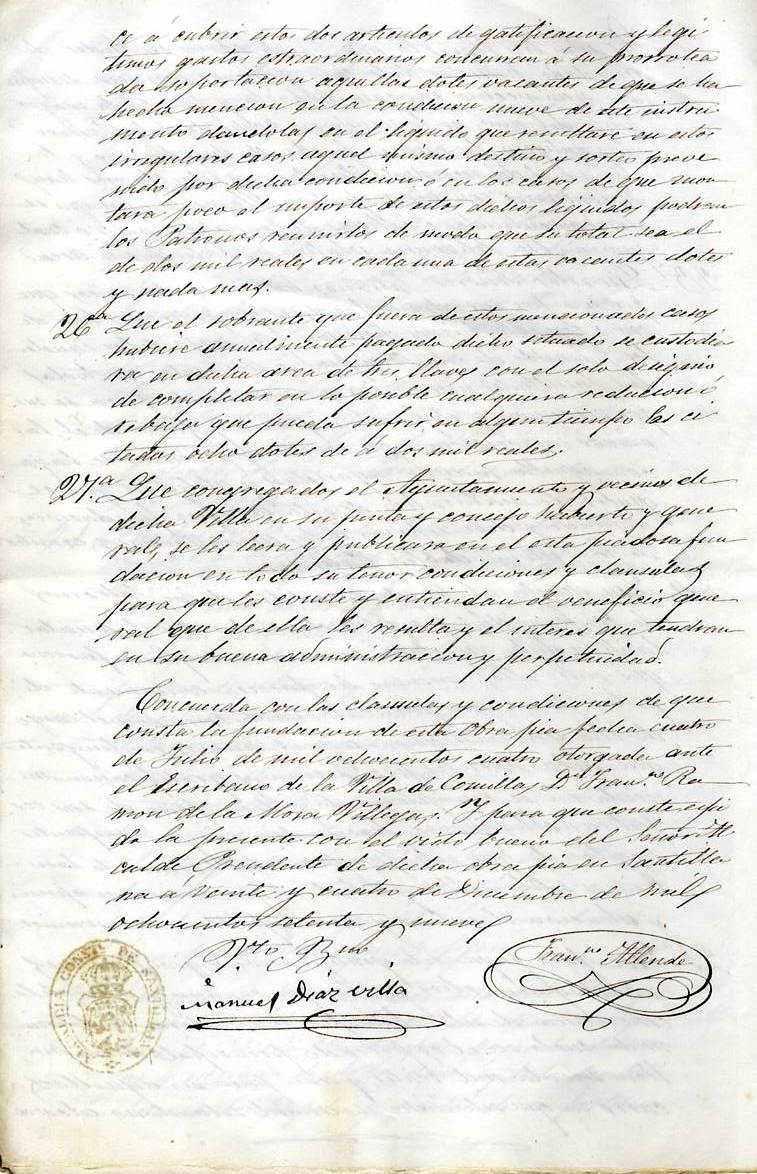 ce á cubrir estos dos articulos de gatificacion y legi
timos gastos estraordinarios concurran á su prorrotea
da soportacion aquellas dotes vacantes de que se ha
hecho mencion en la condicion nueve de este instru
mento dandolas en el liquido que resultare en estos
irregulares casos aquel mismo destino y sorteo preve
nido por dicha condicion ó en los casos de que mon
tara poco el importe de estos dichos liquidos podran
los Patronos reunirlos de modo que su total sea el
de dos mil reales en cada una de estas vacantes dotes
y nada mas.
26ª Que el sobrante que fuera de estos mencionados casos
hubiere anualmente pagado dicho situado se custodia
ra en dicha arca de tres llaves con el solo designio
de completar en lo posible cualquiera reducion ó
rebaja que pueda sufrir en algun tiempo las ci
tadas ocho dotes de á dos mil reales.
27.ª Que congregados el Ayuntamiento y vecinos de
dicha Villa en su junta y concejo abierto y gene
ral, se les leera y publicara en el esta piadosa fun
dacion en todo su tenor condiciones y clausulas
para que les conste y entiendan el veneficio gene
ral que de ella les resulta y el interes que tendran
en su buena administracion y perpetuidad.
Concuerda con las clausulas y condiciones de que
consta la fundacion de esta obra pia fecha cuatro
de Julio de mil ochocientos cuatro otorgada ante
el Escribano de la Villa de Comillas Dn Fran.co Ra
mon de la Mora Villegas. Y para que conste espi
do la presente con el visto bueno del Señor Al
calde Presidente de dicha obra pia en Santilla
na á veinte y cuatro de Diciembre de mil
ochocientos setenta y nueve
Vto Bno
Fran.co Allende
Manuel Diaz Villa
ALCALDIA CONSTL. DE SANTILLANA